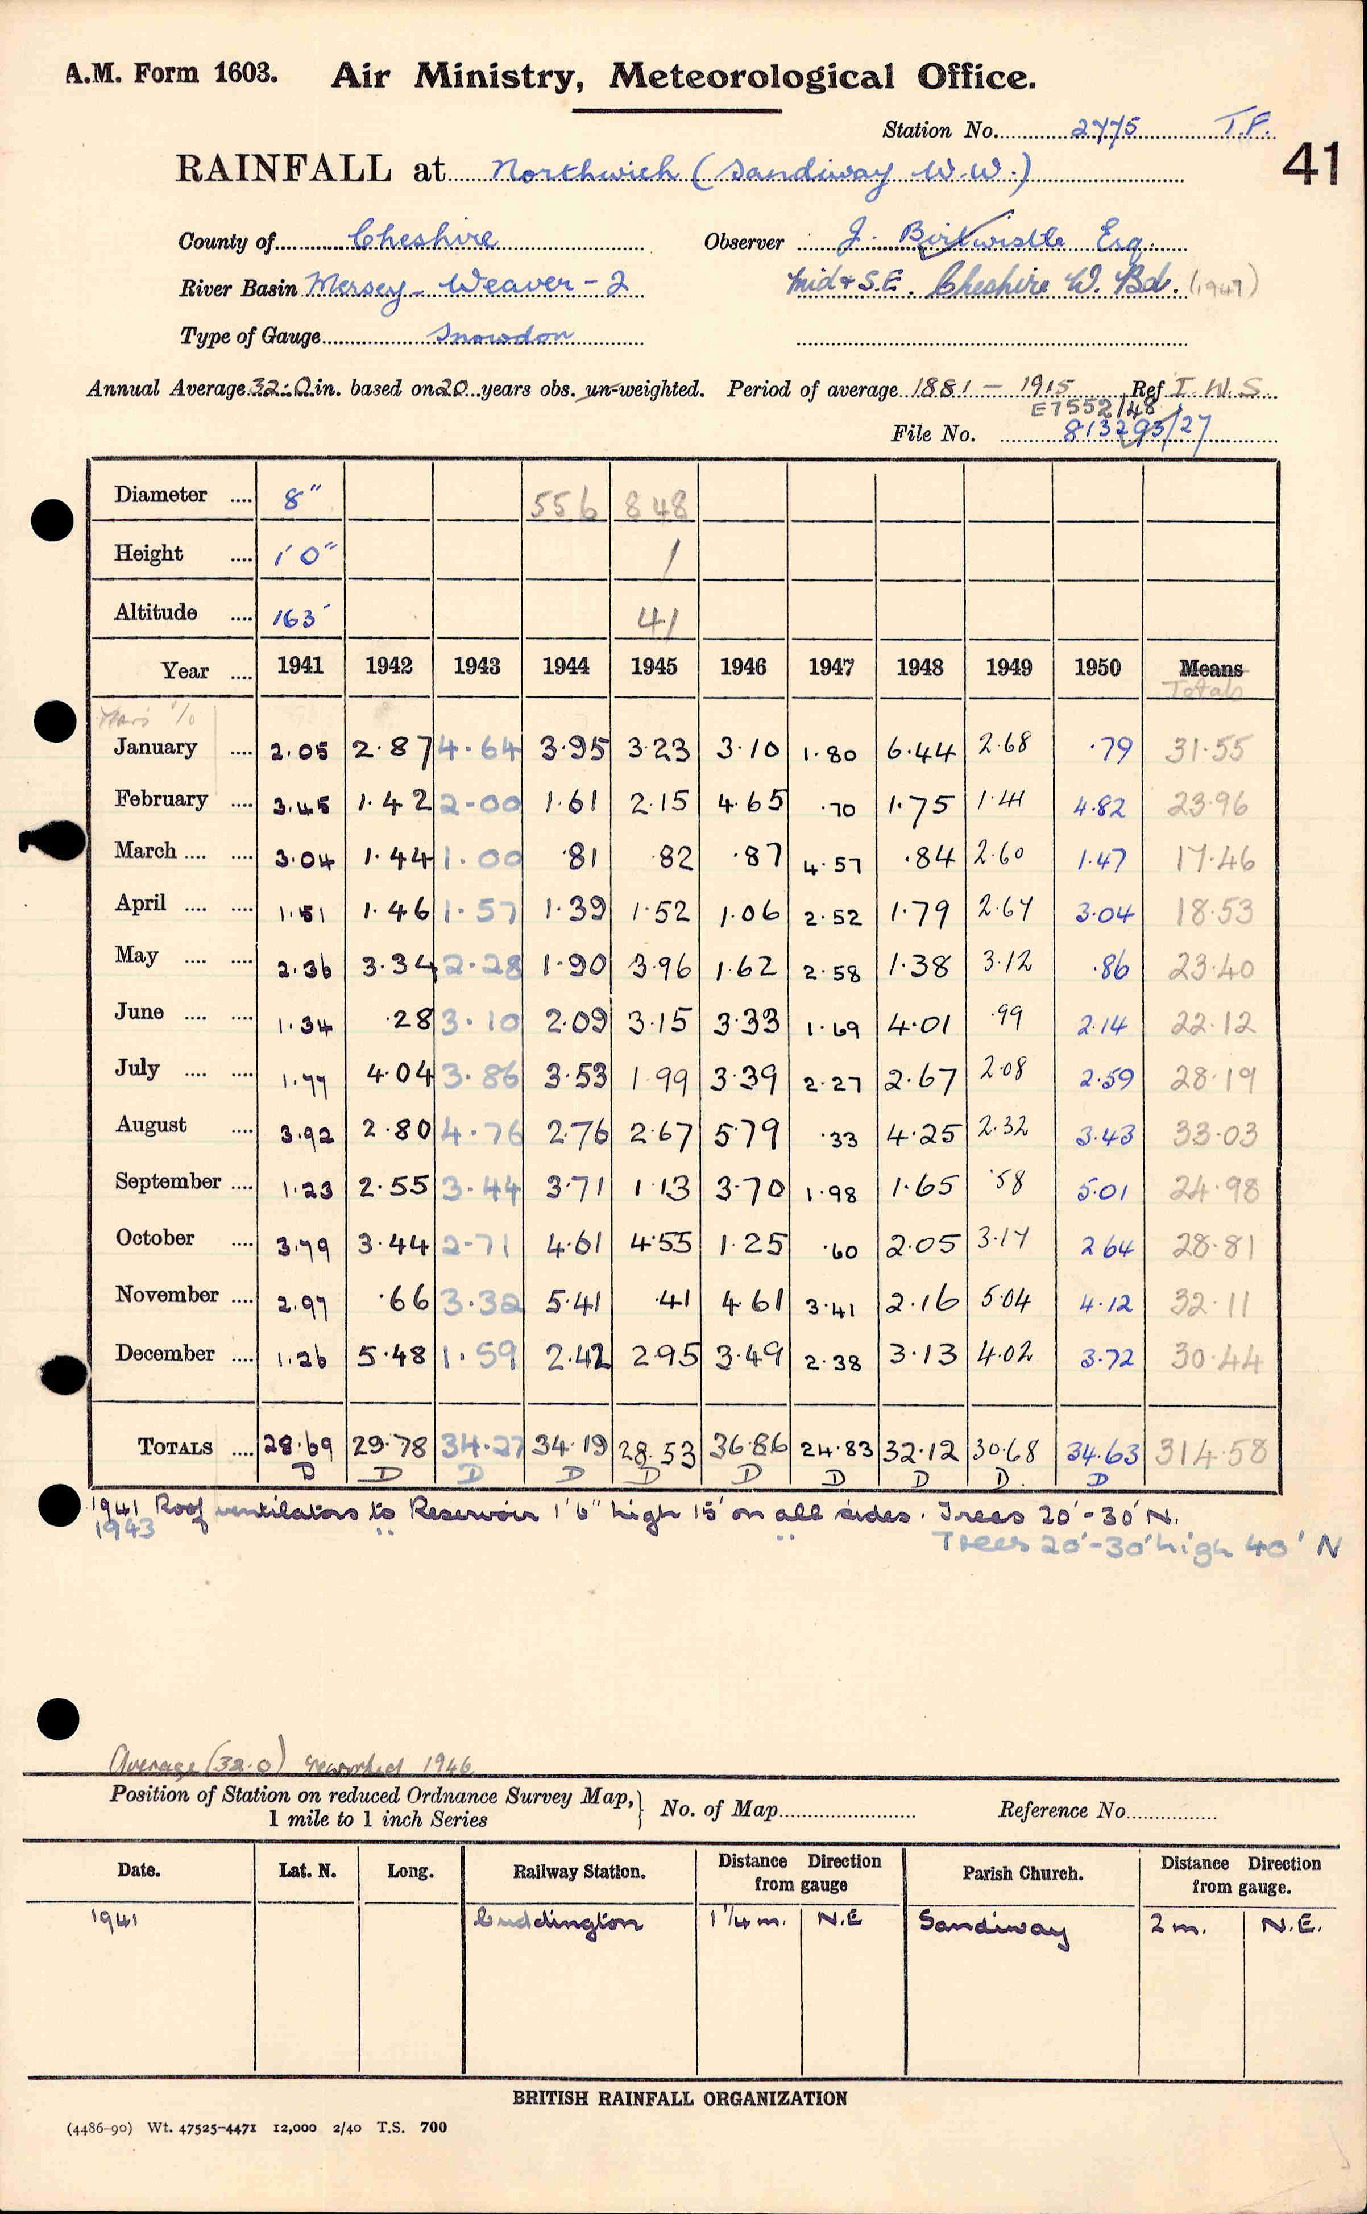 A.M. Form 1603. Air Ministry, Meteorological Office.
Station No. 2775 T.P.
41
RAINFALL at Northwich (Sandiway W.W.)
County of Cheshire Observer J. Birtwistle Esq.
River Basin Mersey - Weaver - 2 Mid & S.E. Cheshire W. Bd. (1947)
Type of Gauge Snowdon
Annual Average 32.0 in. based on 20 years obs. un-weighted. Period of average 1881 - 1915 Ref I.W.S.
E7552/48
File No. 813293/27
Diameter .... 8" 556 848
Height .... 1' 0" 1
Altitude .... 163' 41
Year .... 1941 1942 1943 1944 1945 1946 1947 1948 1949 1950 Means
Totals
January .... 2.05 2.87 4.64 3.95 3.23 3.10 1.80 6.44 2.68 .79 31.55
February .... 3.45 1.42 2.00 1.61 2.15 4.65 .70 1.75 1.41 4.82 23.96
March .... .... 3.04 1.44 1.00 .81 .82 .87 4.57 .84 2.60 1.47 17.46
April .... .... 1.51 1.46 1.57 1.39 1.52 1.06 2.52 1.79 2.67 3.04 18.53
May .... .... 2.36 3.34 2.28 1.90 3.96 1.62 2.58 1.38 3.12 .86 23.40
June .... .... 1.34 .28 3.10 2.09 3.15 3.33 1.69 4.01 .99 2.14 22.12
July .... .... 1.77 4.04 3.86 3.53 1.99 3.39 2.27 2.67 2.08 2.59 28.19
August .... 3.92 2.80 4.76 2.76 2.67 5.79 .33 4.25 2.32 3.43 33.03
September .... 1.23 2.55 3.44 3.71 1.13 3.70 1.98 1.65 .58 5.01 24.98
October .... 3.79 3.44 2.71 4.61 4.55 1.25 .60 2.05 3.17 2.64 28.81
November .... 2.97 .66 3.32 5.41 .41 4.61 3.41 2.16 5.04 4.12 32.11
December .... 1.26 5.48 1.59 2.42 2.95 3.49 2.38 3.13 4.02 3.72 30.44
TOTALS .... 28.69 29.78 34.27 34.19 28.53 36.86 24.83 32.12 30.68 34.63 314.58
D D D D D D D D D D
1941 Roof ventilators to Reservoir 1'6" high 15' on all sides. Trees 20'-30' N.
1943 " " Trees 20'-30' high 40' N
Average (32.0) reworked 1946
Position of Station on reduced Ordnance Survey Map, 1 mile to 1 inch Series } No. of Map Reference No.
Date. Lat. N. Long. Railway Station. Distance Direction from gauge Parish Church. Distance Direction from gauge.
1941 Cuddington 1¼ m. N.E Sandiway 2 m. N.E.
BRITISH RAINFALL ORGANIZATION
(4486-90) Wt. 47525-4471 12,000 2/40 T.S. 700